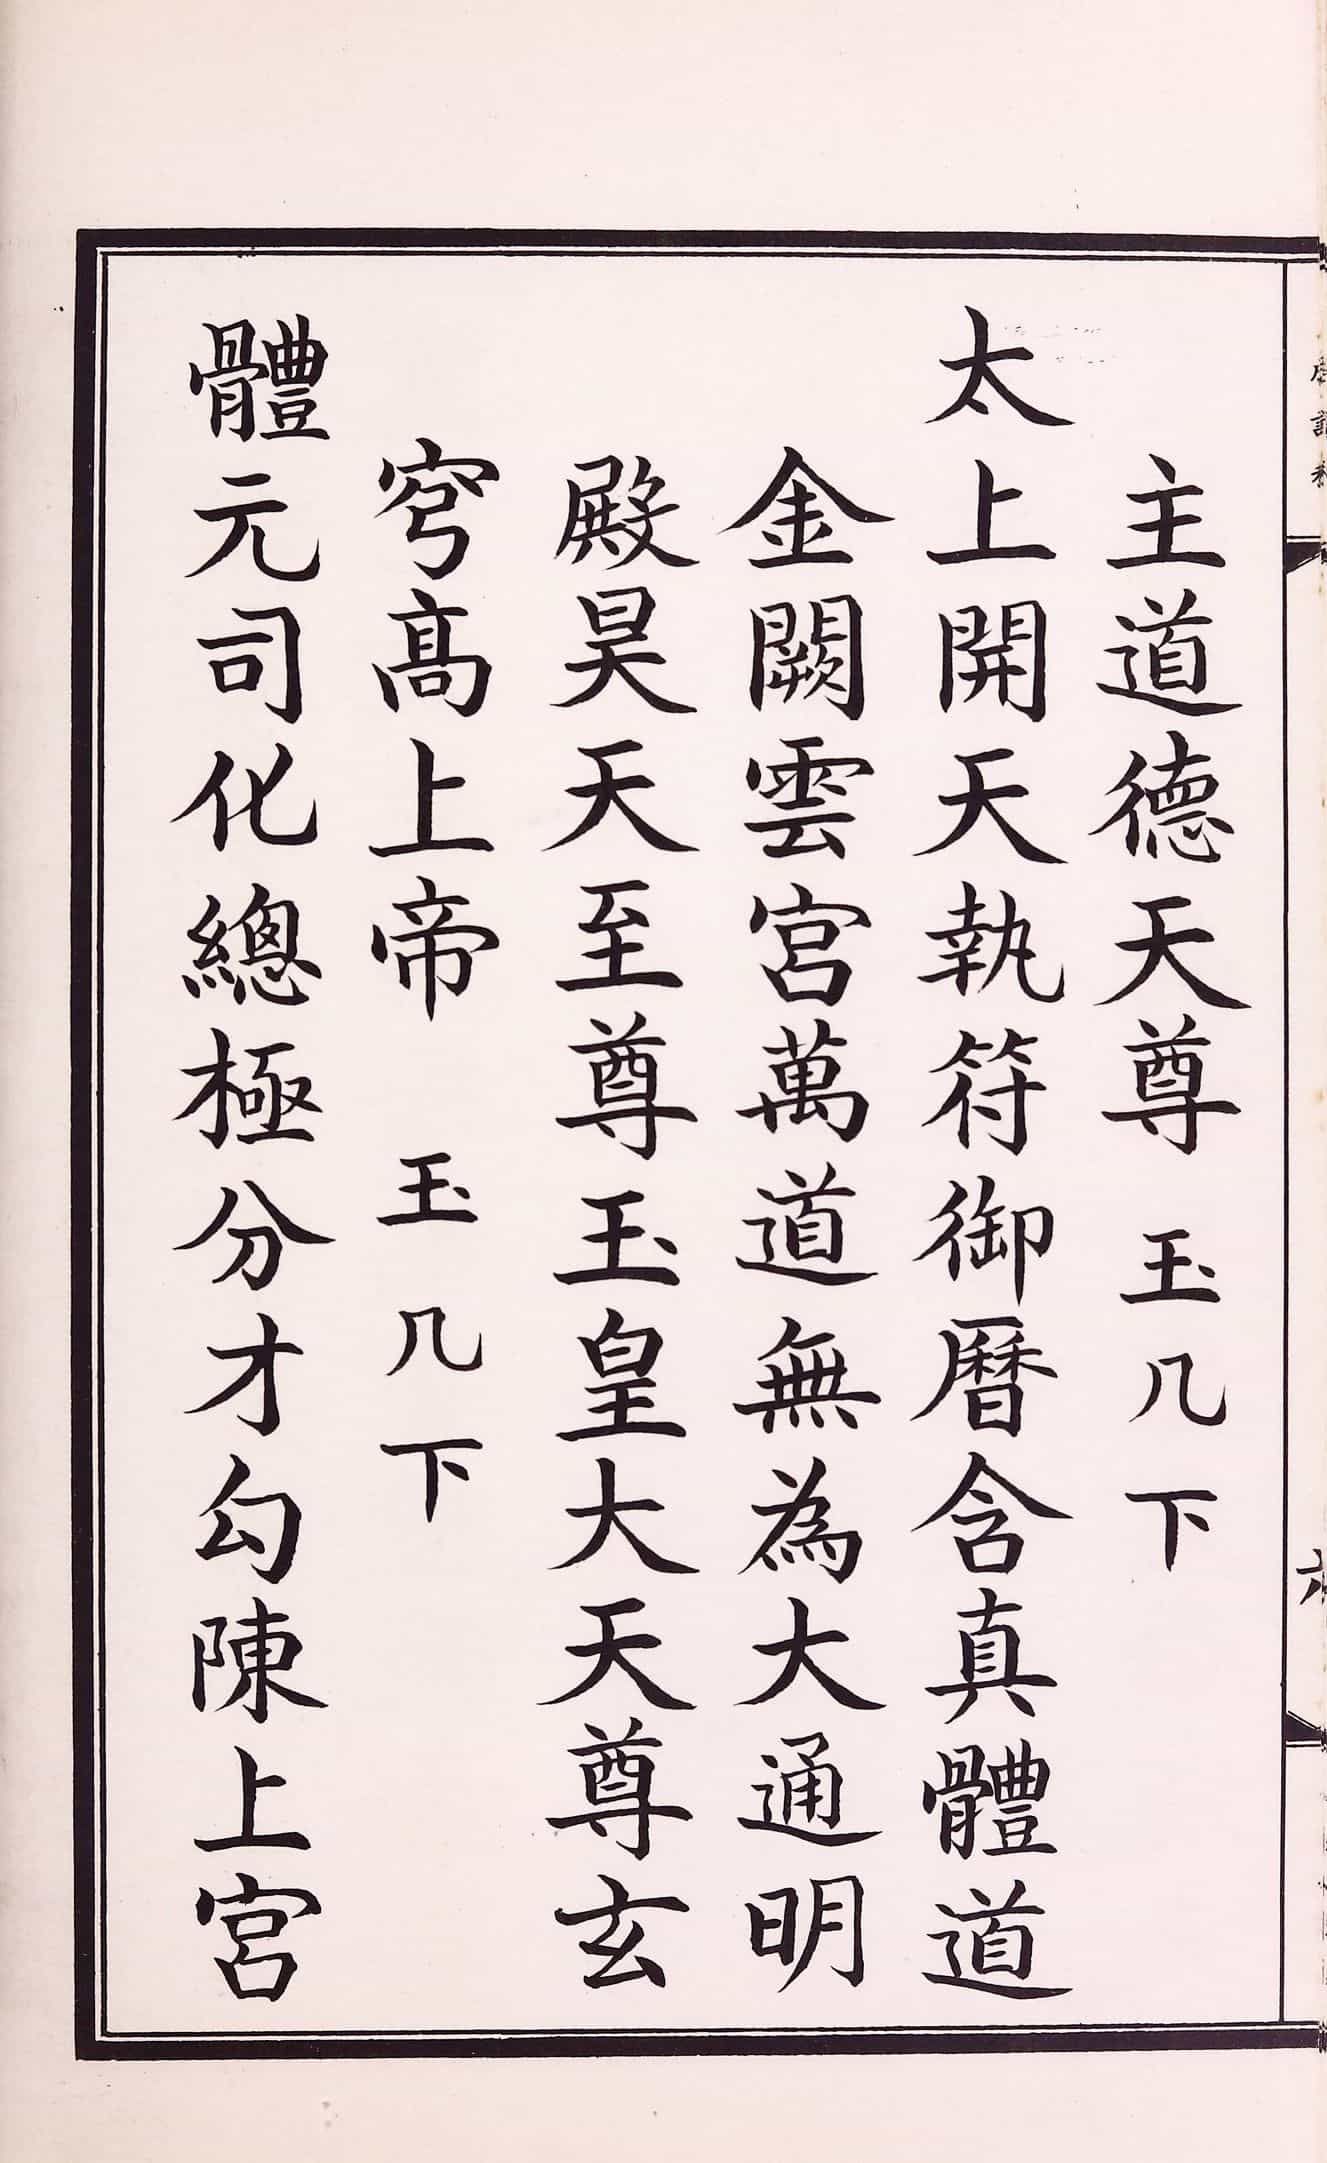 主道德天尊　玉几下
太上開天執符御曆含真體道
金闕雲宮萬道無為大通明
殿昊天至尊玉皇大天尊玄
穹髙上帝　玉几下
體元司化總極分才勾陳上宮